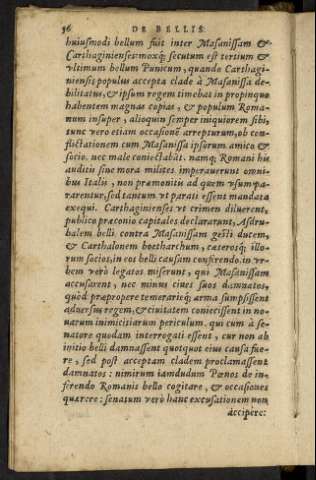 36 DE BELLIS
huiusmodi bellum fuit inter Masanissam &
Carthaginienses: moxq́; secutum est tertium &
vltimum bellum Punicum, quando Carthagi-
niensis populus accepta clade à Masanissa de-
bilitatus, & ipsum regem timebat in propinquo
habentem magnas copias, & populum Roma-
num insuper, alioquin semper iniquiorem sibi,
tunc vero etiam occasionẽ arrepturum, ob con-
flictationem cum Masanissa ipsorum amico &
socio. nec male coniectabãt. namq; Romani his
auditis sine mora milites imperauerunt omni-
bus Italis, non præmonitis ad quem vsum pa-
rarentur, sed tantum vt parati essent mandata
exequi. Carthaginienses vt crimen diluerent,
publico præconio capitales declararunt, Asdru-
balem belli contra Masanissam gesti ducem,
& Carthalonem boetharchum, cæterosq́; illo-
rum socios, in eos belli causam conferendo. in vr-
bem verò legatos miserunt, qui Masanissam
accusarent, nec minus ciues suos damnatos,
quòd præpropere temerariéq; arma sumpsissent
aduersus regem, & ciuitatem coniecissent in no-
uarum inimicitiarum periculum. qui cum à se-
natore quodam interrogati essent, cur non ab
initio belli damnassent quotquot eius causa fue-
re, sed post acceptam cladem proclamassent
damnatos: nimirum iamdudum Pœnos de in-
ferendo Romanis bello cogitare, & occasiones
quærere: senatum verò hanc excusationem non
accipere: